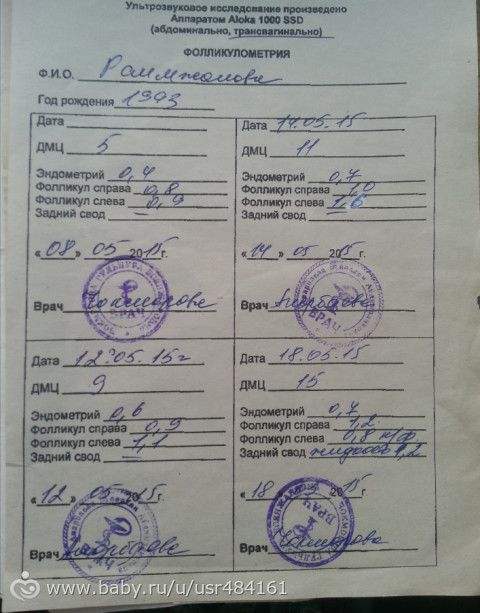 Ультрозвуковое исследование произведено
Аппаратом Aloka 1000 SSD
(абдоминально, трансвагинально)
ФОЛЛИКУЛОМЕТРИЯ
Ф.И.О.
Год рождения 1993
Дата
ДМЦ 5
Эндометрий 0,4
Фолликул справа 0,8
Фолликул слева 0,9
Задний свод —
«08» 05 2015г
Врач
ВРАЧ
Дата 14.05.15
ДМЦ 11
Эндометрий 0,7
Фолликул справа 1,0
Фолликул слева 1,6
Задний свод —
«14» 05 2015г
Врач
ВРАЧ
Дата 12.05.15г
ДМЦ 9
Эндометрий 0,6
Фолликул справа 0,9
Фолликул слева 1,1
Задний свод —
«12» 05 2015г
Врач
Дата 18.05.15
ДМЦ 15
Эндометрий 0,7
Фолликул справа 1,2
Фолликул слева 0,8
Задний свод жидкость 1,2
«18» 2015г
Врач
ВРАЧ
www.baby.ru/u/usr484161